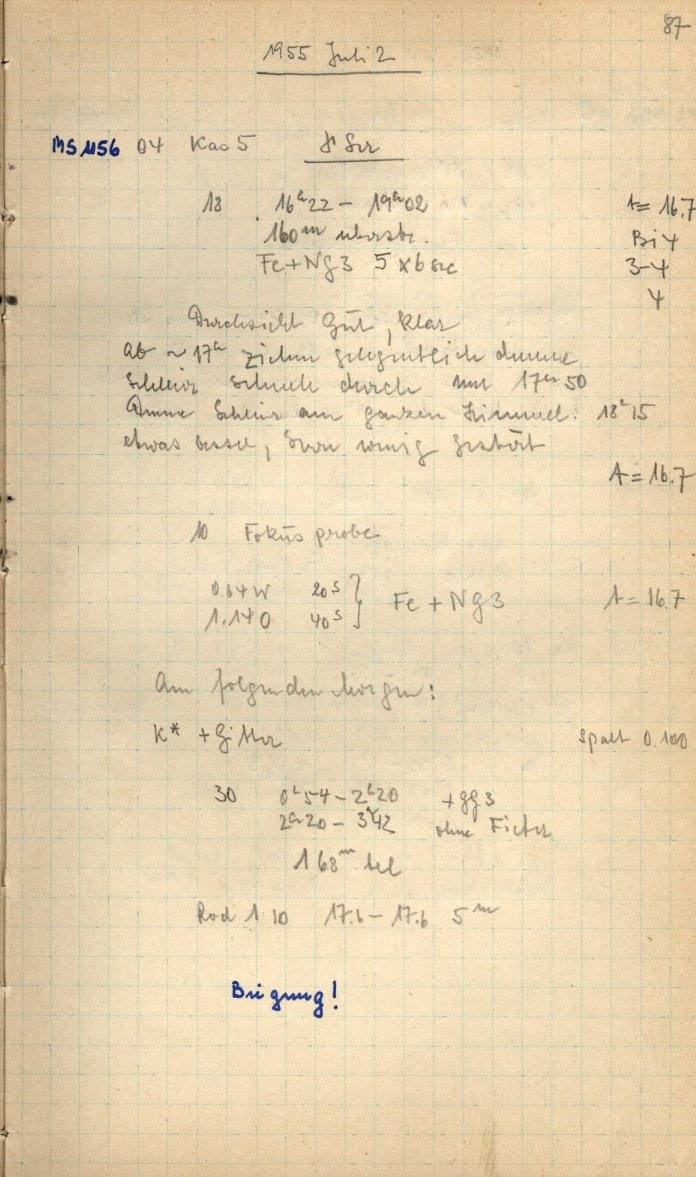 87
1955 Juli 2
MS 1156 04 Kas 5 Ser
18 16ʰ22 – 19ʰ02 A = 16.7
160ᵐ Bi 4
Fe + Ng3 5 x 6 sec 3-4
4
Durchsicht Gut, klar
ab ~ 17ʰ ziehen gelegentlich dunne
Schleier schnell durch um 17ʰ 50
Dunne Schleier am ganzen Himmel. 18ʰ15
etwas besser, wenig gestört
A = 16.7
10 Fokusprobe
0.64W 20ˢ } Fe + Ng3 A = 16.7
1.140 40ˢ
Am folgenden Morgen:
K* + Gitter Spalt 0.100
30 0ʰ54 – 2ʰ20 + gg3
2ʰ20 – 3ʰ42 ohne Filter
168ᵐ bel
Rod 1 10 17.6 – 17.6 5ᵐ
Biegung!